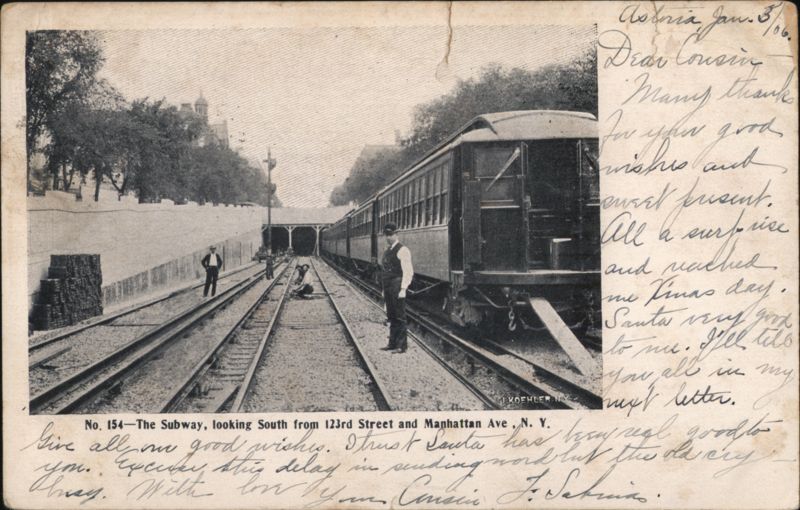 Astoria, Jan. 3/06.
Dear Cousin —
Many thanks
for your good
wishes and
sweet present.
All a surprise
and reached
me Xmas day.
Santa very good
to me. I'll tell
you all in my
next letter.
J. KOEHLER, N.Y.
No. 154—The Subway, looking South from 123rd Street and Manhattan Ave., N. Y.
Give all our good wishes. I trust Santa has been real good to
you. Excuse this delay in sending word but the old cry —
busy. With love Your Cousin F. Sabina.